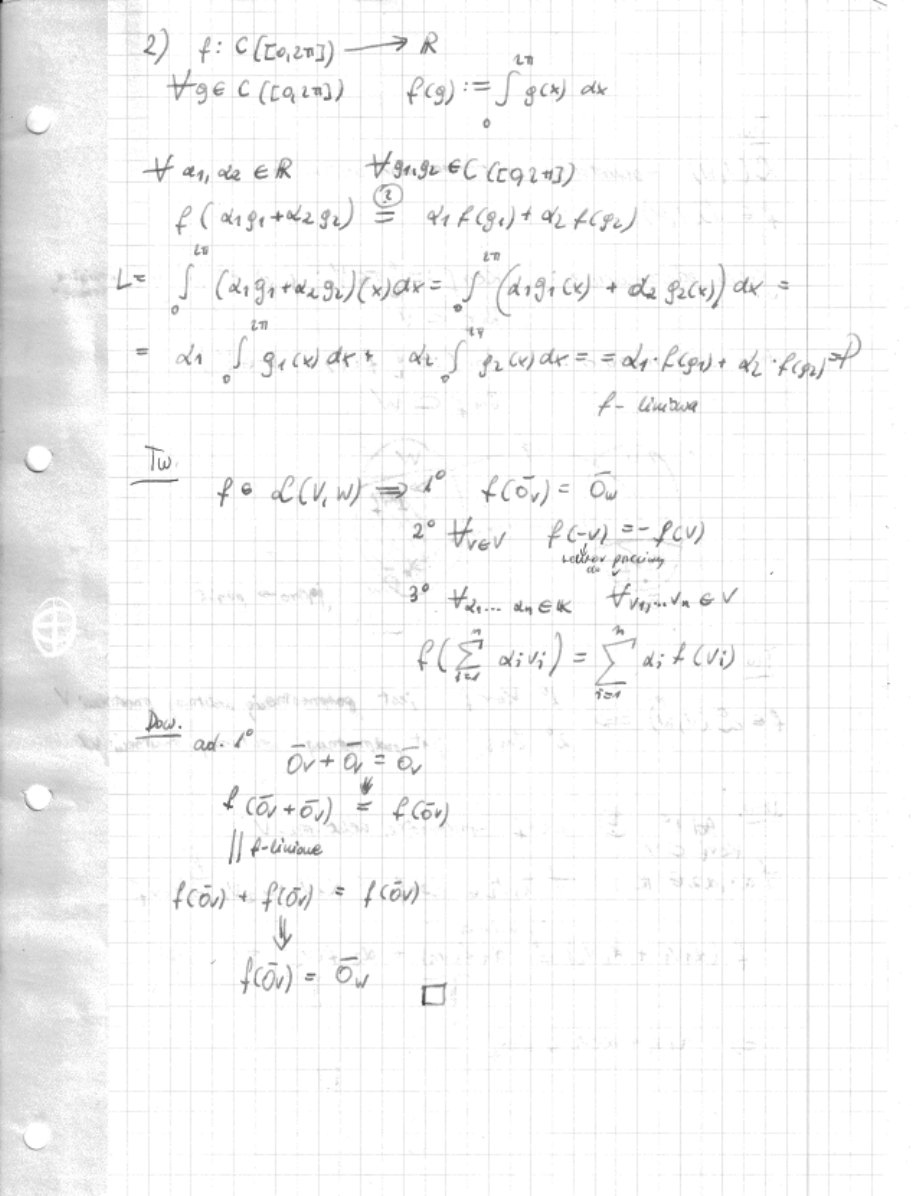 2) f: C([0,2π]) ⟶ ℝ
∀g∈C([0,2π]) f(g) := ∫₀^{2π} g(x) dx
∀ α₁,α₂ ∈ ℝ ∀g₁,g₂ ∈ C([0,2π])
f(α₁g₁+α₂g₂) =^{?} α₁f(g₁) + α₂f(g₂)
L= ∫₀^{2π} (α₁g₁+α₂g₂)(x)dx = ∫₀^{2π} (α₁g₁(x) + α₂g₂(x)) dx =
= α₁ ∫₀^{2π} g₁(x)dx + α₂ ∫₀^{2π} g₂(x)dx = = α₁·f(g₁) + α₂·f(g₂) = P
f - liniowa
Tw.
f ∈ ℒ(V,W) ⟹ 1° f(0̄ᵥ) = 0̄_W
2° ∀_{v∈V} f(-v) = -f(v)
wektor przeciwny
do v
3° ∀_{α₁...αₙ∈𝕂} ∀_{v₁,...vₙ∈V}
f(∑_{i=1}^{n} αᵢvᵢ) = ∑_{i=1}^{n} αᵢ f(vᵢ)
Dow. ad. 1°
0̄ᵥ + 0̄ᵥ = 0̄ᵥ
⇓
f(0̄ᵥ+0̄ᵥ) = f(0̄ᵥ)
|| f-liniowe
f(0̄ᵥ) + f(0̄ᵥ) = f(0̄ᵥ)
⇓
f(0̄ᵥ) = 0̄_W □